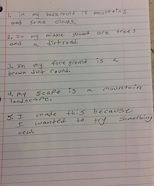 1. in my background is mountains
and some clouds.
2. In my middle ground are trees
and a dirtroad.
3. In my foreground is a
brown dirt road.
4. my scape is a mountain
landscape.
5 I made this because
I wanted to try something